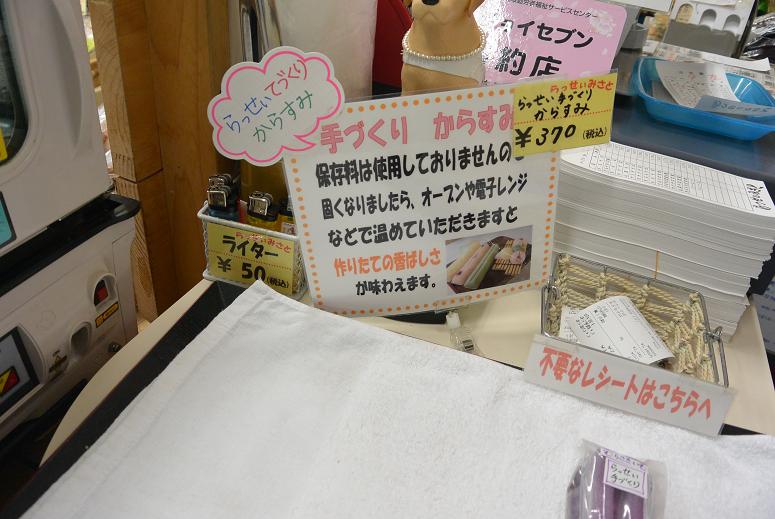 祉サービスセンター
ハイセブン
約店
らっせぃてづくり
からすみ
手づくり からすみ
保存料は使用しておりませんの
固くなりましたら、オーブンや電子レンジ
などで温めていただきますと
作りたての香ばしさ
が味わえます。
らっせぃみさと
らっせぃ手づくり
からすみ
¥370 (税込)
らっせぃみさと
ライター
¥50 (税込)
不要なレシートはこちらへ
らっせぃ
手づくり